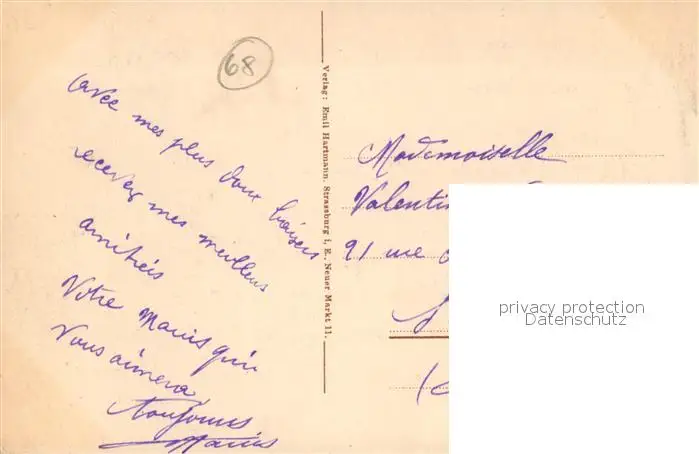 68
avec mes plus doux baisers
recevez mes meilleurs
amitiés
Votre Marius qui
Vous aimera
toujours
Marius
Verlag: Emil Hartmann, Strassburg i. E., Neuer Markt 11.
Mademoiselle
Valentin
91 rue
privacy protection
Datenschutz